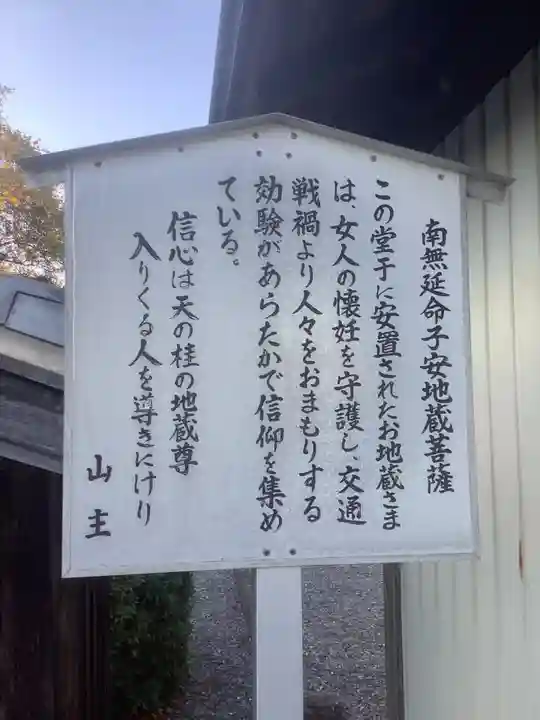 南無延命子安地蔵菩薩
この堂宇に安置されたお地蔵さま
は、女人の懐妊を守護し、交通
戦禍より人々をおまもりする
効験があらたかで信仰を集め
ている。
信心は天の桂の地蔵尊
入りくる人を導きにけり
山主